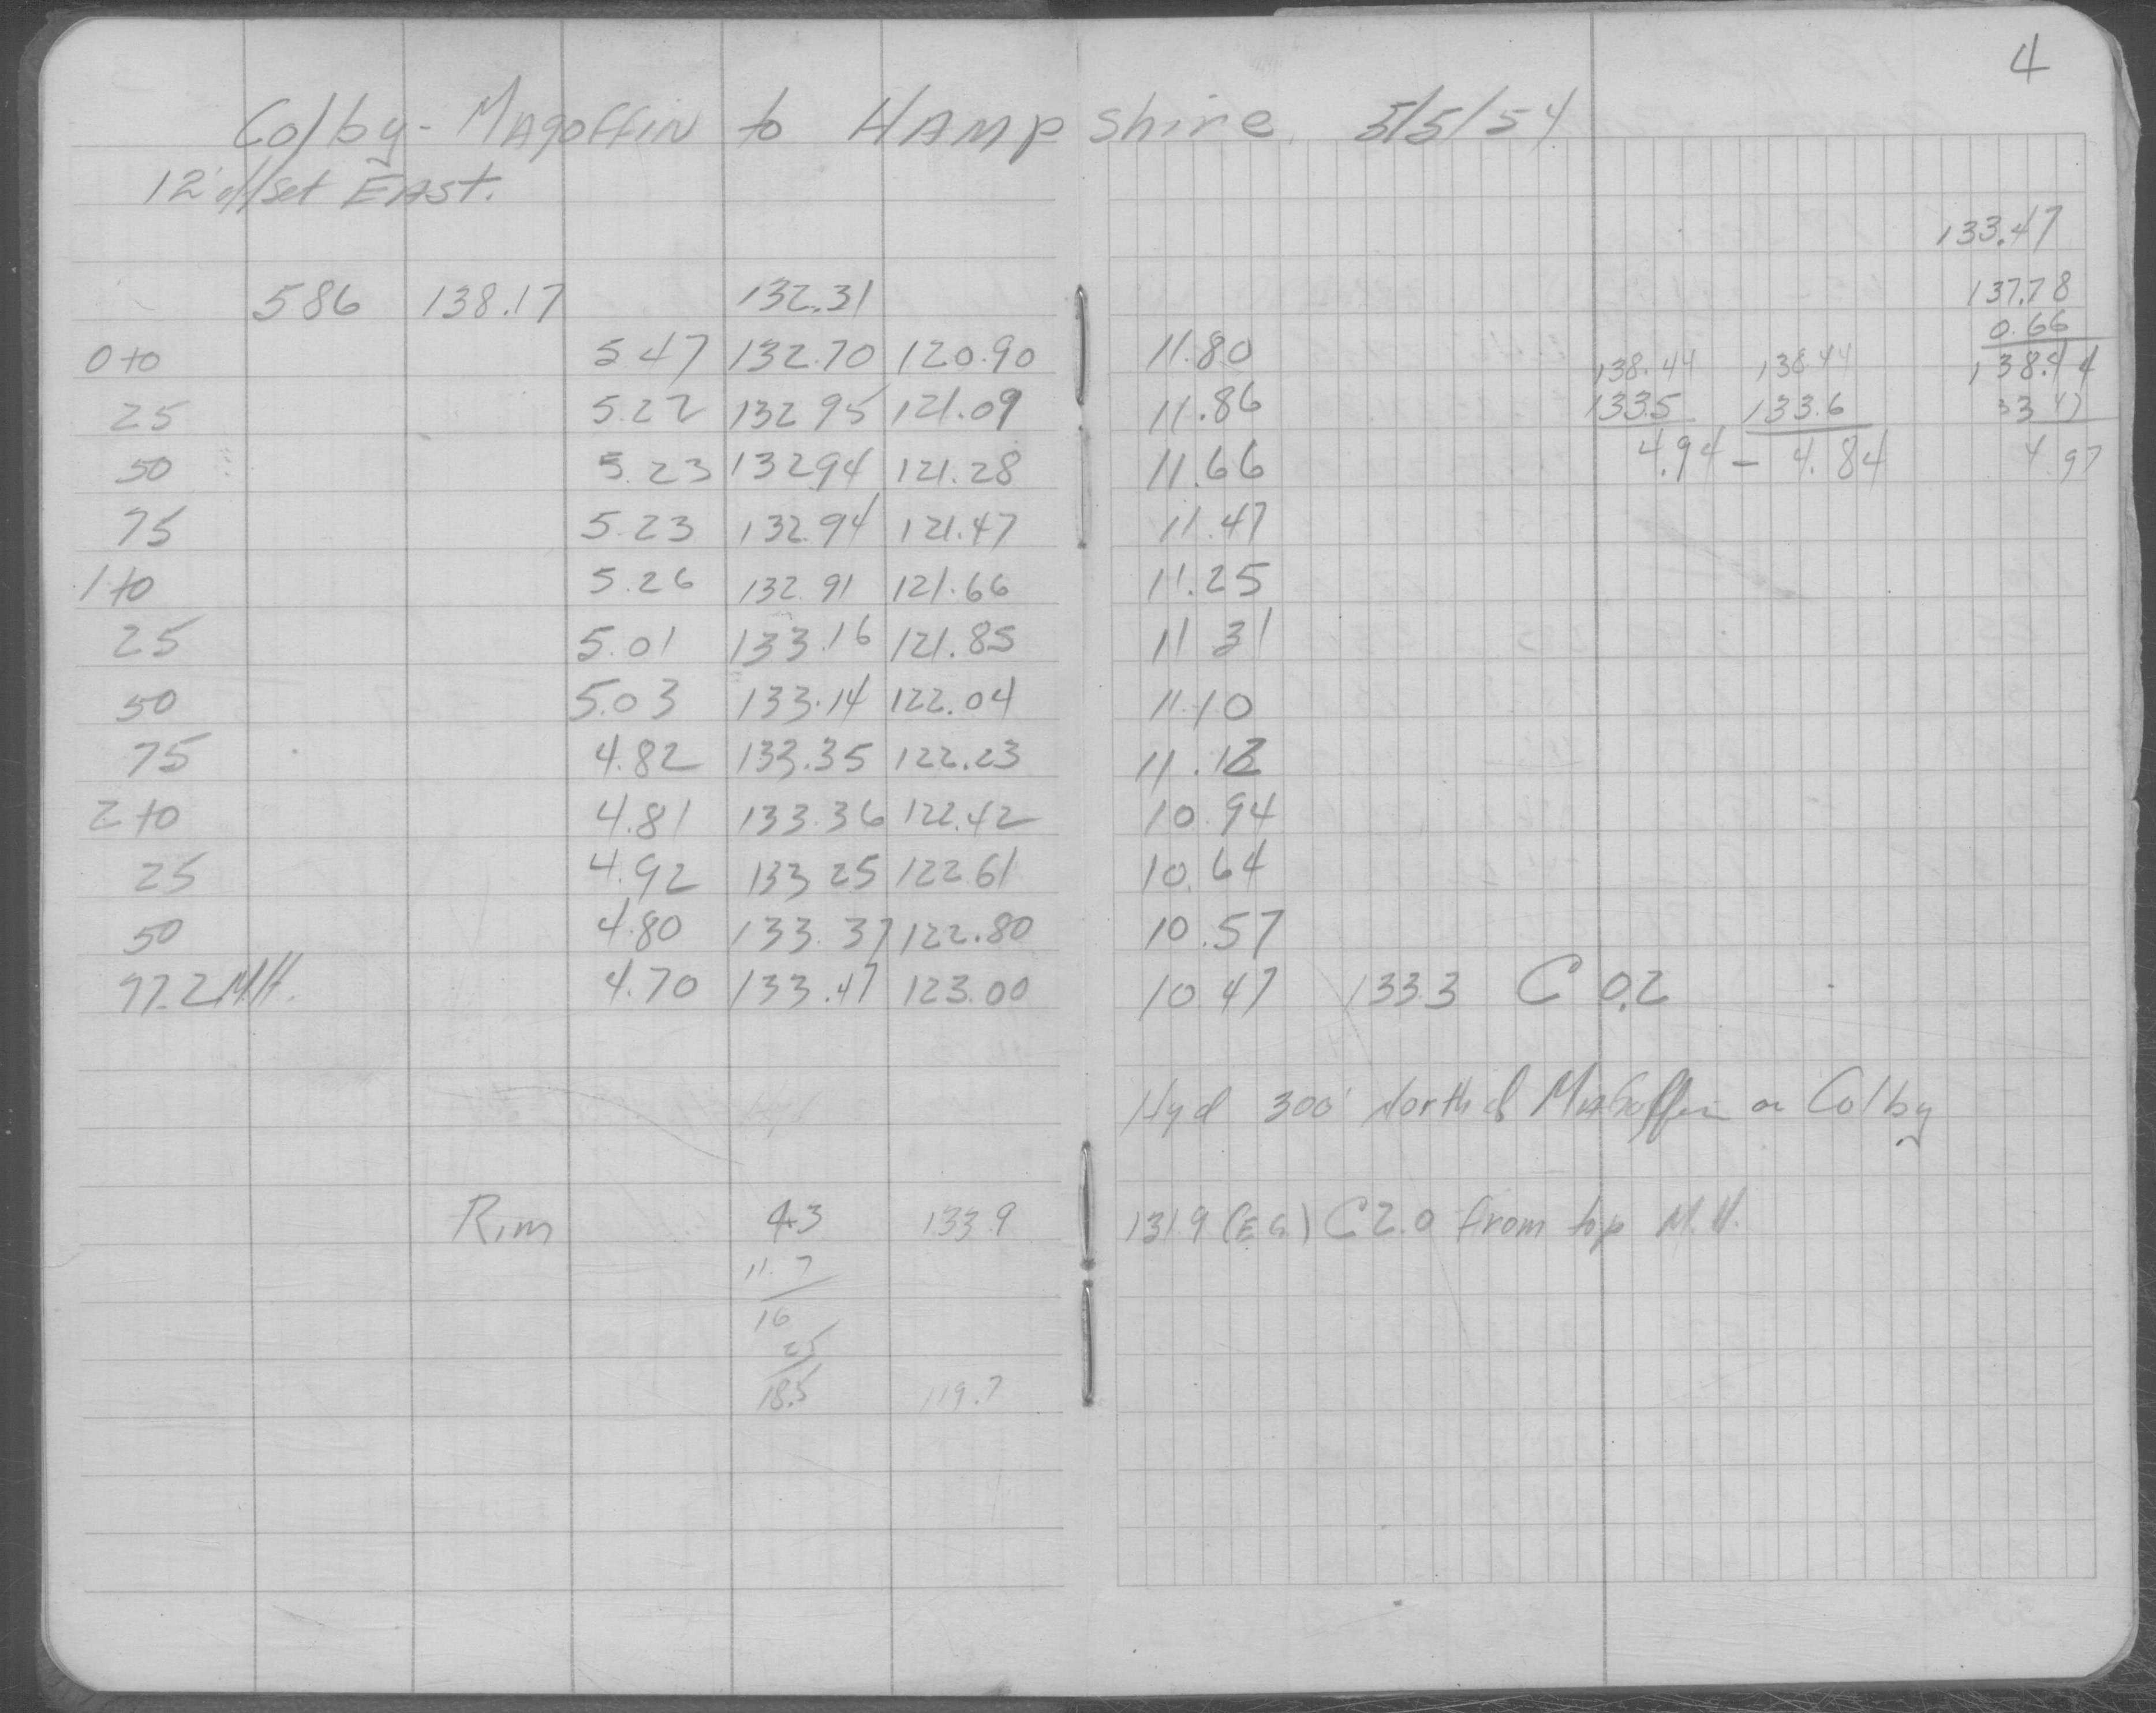 4
Colby - Magoffin to Hampshire 5/5/54
12' offset East.
133.47
586 138.17 132.31 137.78
0.66
0+0 5.47 132.70 120.90 11.80 138.44 138.44 138.44
25 5.22 132.95 121.09 11.86 133.5 133.6 33 47
50 5.23 132.94 121.28 11.66 4.94 - 4.84 4.97
75 5.23 132.94 121.47 11.47
1+0 5.26 132.91 121.66 11.25
25 5.01 133.16 121.85 11.31
50 5.03 133.14 122.04 11.10
75 4.82 133.35 122.23 11.12
2+0 4.81 133.36 122.42 10.94
25 4.92 133.25 122.61 10.64
50 4.80 133.37 122.80 10.57
97.2 M.H. 4.70 133.47 123.00 10.47 133.3 C 0.2
Hyd 300' North of Magoffin on Colby
Rim 4.3 133.9 131.9 (E G) C 2.0 from top M.H.
11.7
16
25
18.5 119.7